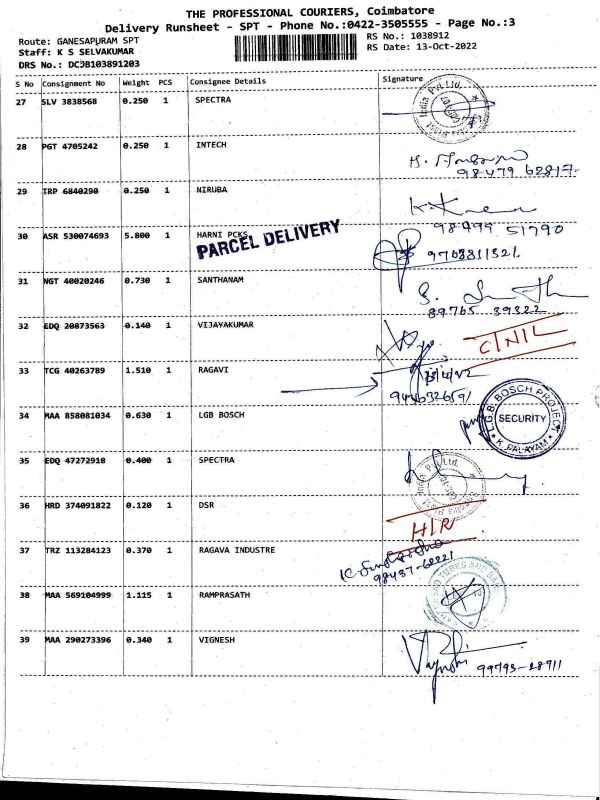 THE PROFESSIONAL COURIERS, Coimbatore
Delivery Runsheet - SPT - Phone No.:0422-3505555 - Page No.:3
Route: GANESAPURAM SPT
RS No.: 1038912
Staff: K S SELVAKUMAR
RS Date: 13-Oct-2022
DRS No.: DCJB103891203
S No Consignment No Weight PCS Consignee Details Signature
27 SLV 3838568 0.250 1 SPECTRA
India Pvt.Ltd.
28 PGT 4705242 0.250 1 INTECH
98479 62817
29 TRP 6840290 0.250 1 NIRUBA
98494 51790
30 ASR 530074693 5.800 1 HARNI PCKS
PARCEL DELIVERY
9703811321
31 NGT 40020246 0.730 1 SANTHANAM
89765 39322
32 EDQ 20873563 0.140 1 VIJAYAKUMAR
C/NIL
33 TCG 40263789 1.510 1 RAGAVI
34 MAA 858081034 0.630 1 LGB BOSCH
L.G.B. BOSCH PROJECT
SECURITY
K.PALAYAM
35 EDQ 47272918 0.400 1 SPECTRA
Pvt.Ltd.
36 HRD 374091822 0.120 1 DSR
H/R
37 TRZ 113284123 0.370 1 RAGAVA INDUSTRE
98437-62221
38 MAA 569104999 1.115 1 RAMPRASATH
TUBES AND
39 MAA 290273396 0.340 1 VIGNESH
99793-28711